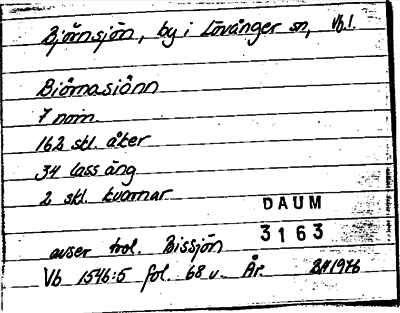 Bjömsjön, by i Lövånger sn, Vb.l.
Biömasiönn
7 nom.
162 skl. åker
34 lass äng
2 skl. kvarnar
DAUM
3163
avser trol. Bissjön
Vb 1546:5 fol. 68 v. År. BH 1976